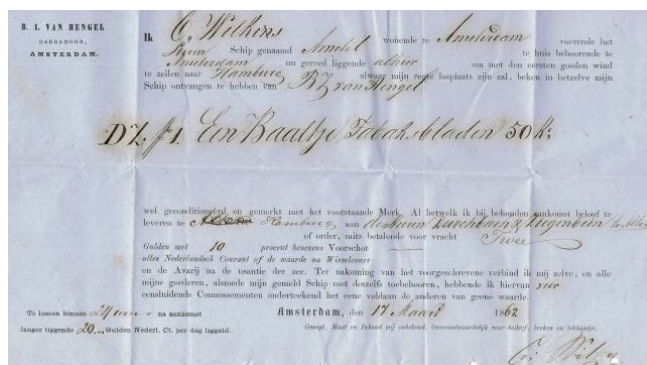 B. I. VAN HENGEL
CARGADOOR,
AMSTERDAM.
Ik C. Wilkens wonende te Amsterdam voerende het
Stoom Schip genaamd Amstel te huis behoorende te
Amsterdam nu gereed liggende alhier om met den eersten goeden wind
te zeilen naar Hamburg alwaar mijn regte losplaats zijn zal, beken in hetzelve mijn
Schip ontvangen te hebben van van Hengel
DZ. 1. Een Baaltje Tabaksbladen 50 K;
wel geconditioneerd en gemerkt met het voorstaande Merk. Al hetwelk ik bij behouden aankomst beloof te
leveren te Hamburg aan de Heeren
of order, mits betalende voor vracht Twee
Gulden met 10 procent benevens Voorschot
alles Nederlandsch Courant of de waarde na Wisselcours
en de Avarij na de usantie der zee. Ter nakoming van het voorgeschrevene verbind ik mij zelve, en alle
mijne goederen, alsmede mijn gemeld Schip met deszelfs toebehooren, hebbende ik hiervan vier
eensluidende Connossementen onderteekend het eene voldaan de anderen van geene waarde.
Te lossen binnen 24 uur na aankomst
Amsterdam, den 17 Maart 1862
langer liggende 20 Gulden Nederl. Ct. per dag liggeld.
Gewigt, Maat en Inhoud mij onbekend. Onverantwoordelijk voor bederf, breken en lekkaadje.
C. Wilkens